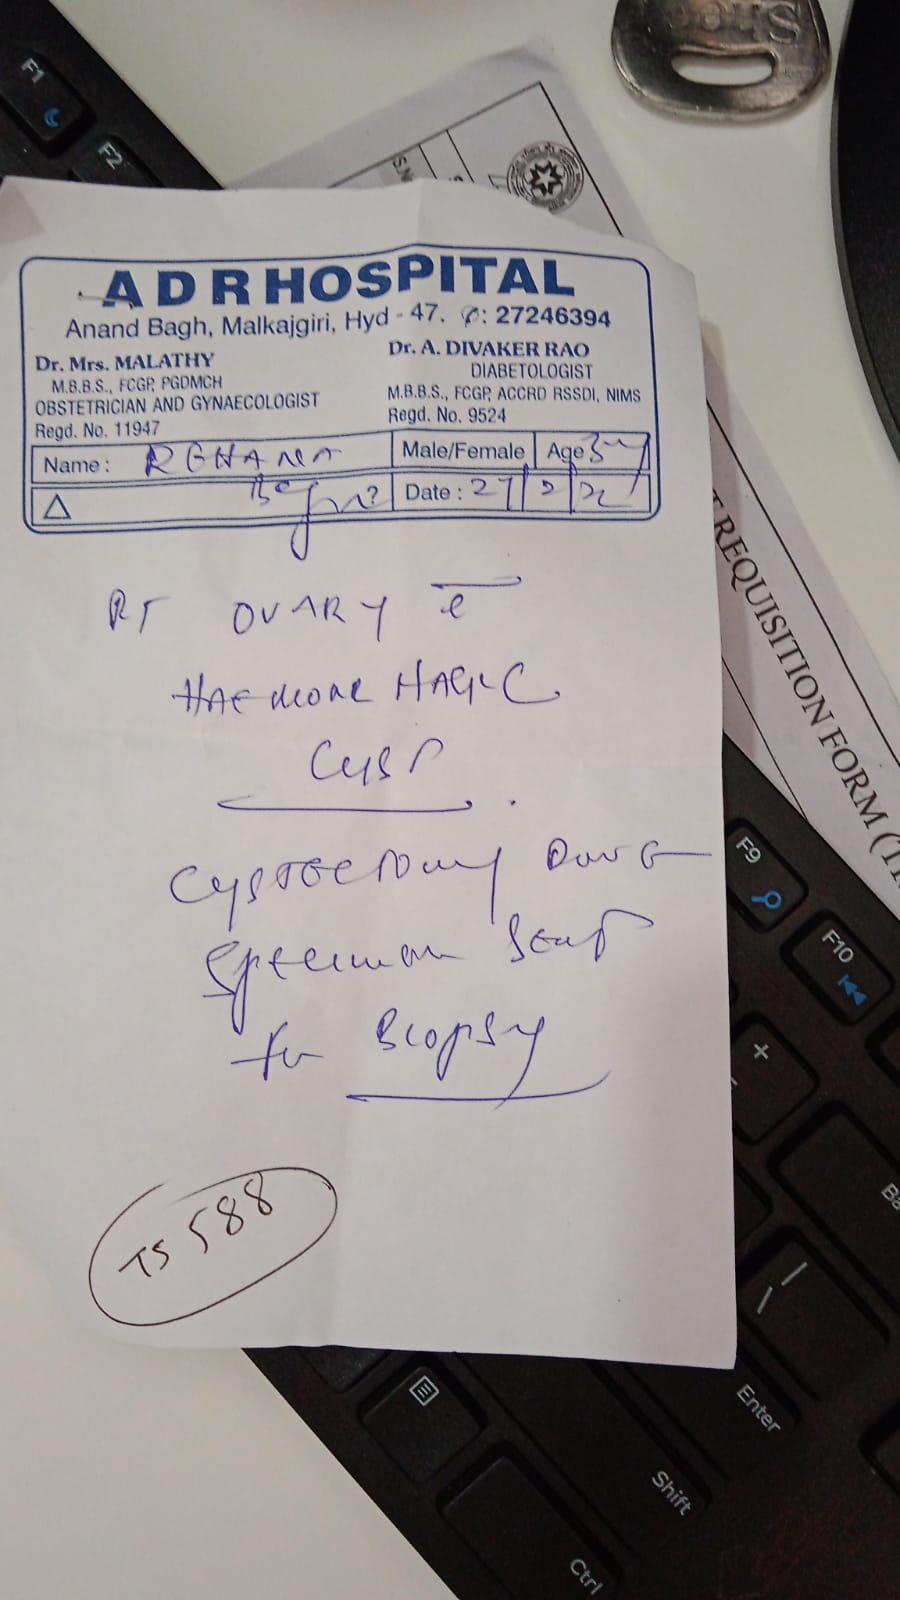 Shoe
F1
F2
S.No
ADR HOSPITAL
Anand Bagh, Malkajgiri, Hyd - 47. ✆: 27246394
Dr. Mrs. MALATHY
M.B.B.S., FCGP, PGDMCH
OBSTETRICIAN AND GYNAECOLOGIST
Regd. No. 11947
Dr. A. DIVAKER RAO
DIABETOLOGIST
M.B.B.S., FCGP, ACCRD RSSDI, NIMS
Regd. No. 9524
Name: REHANA
Male/Female Age
△ ? Date: 27/2/
RT OVARY c̄
HAEMORRHAGIC
CYST
CYSTECTOMY DONE
Specimen Sent
for Biopsy
TS 588
REQUISITION FORM
F9
F10
+
Ba
|
\
Enter
Shift
Ctrl